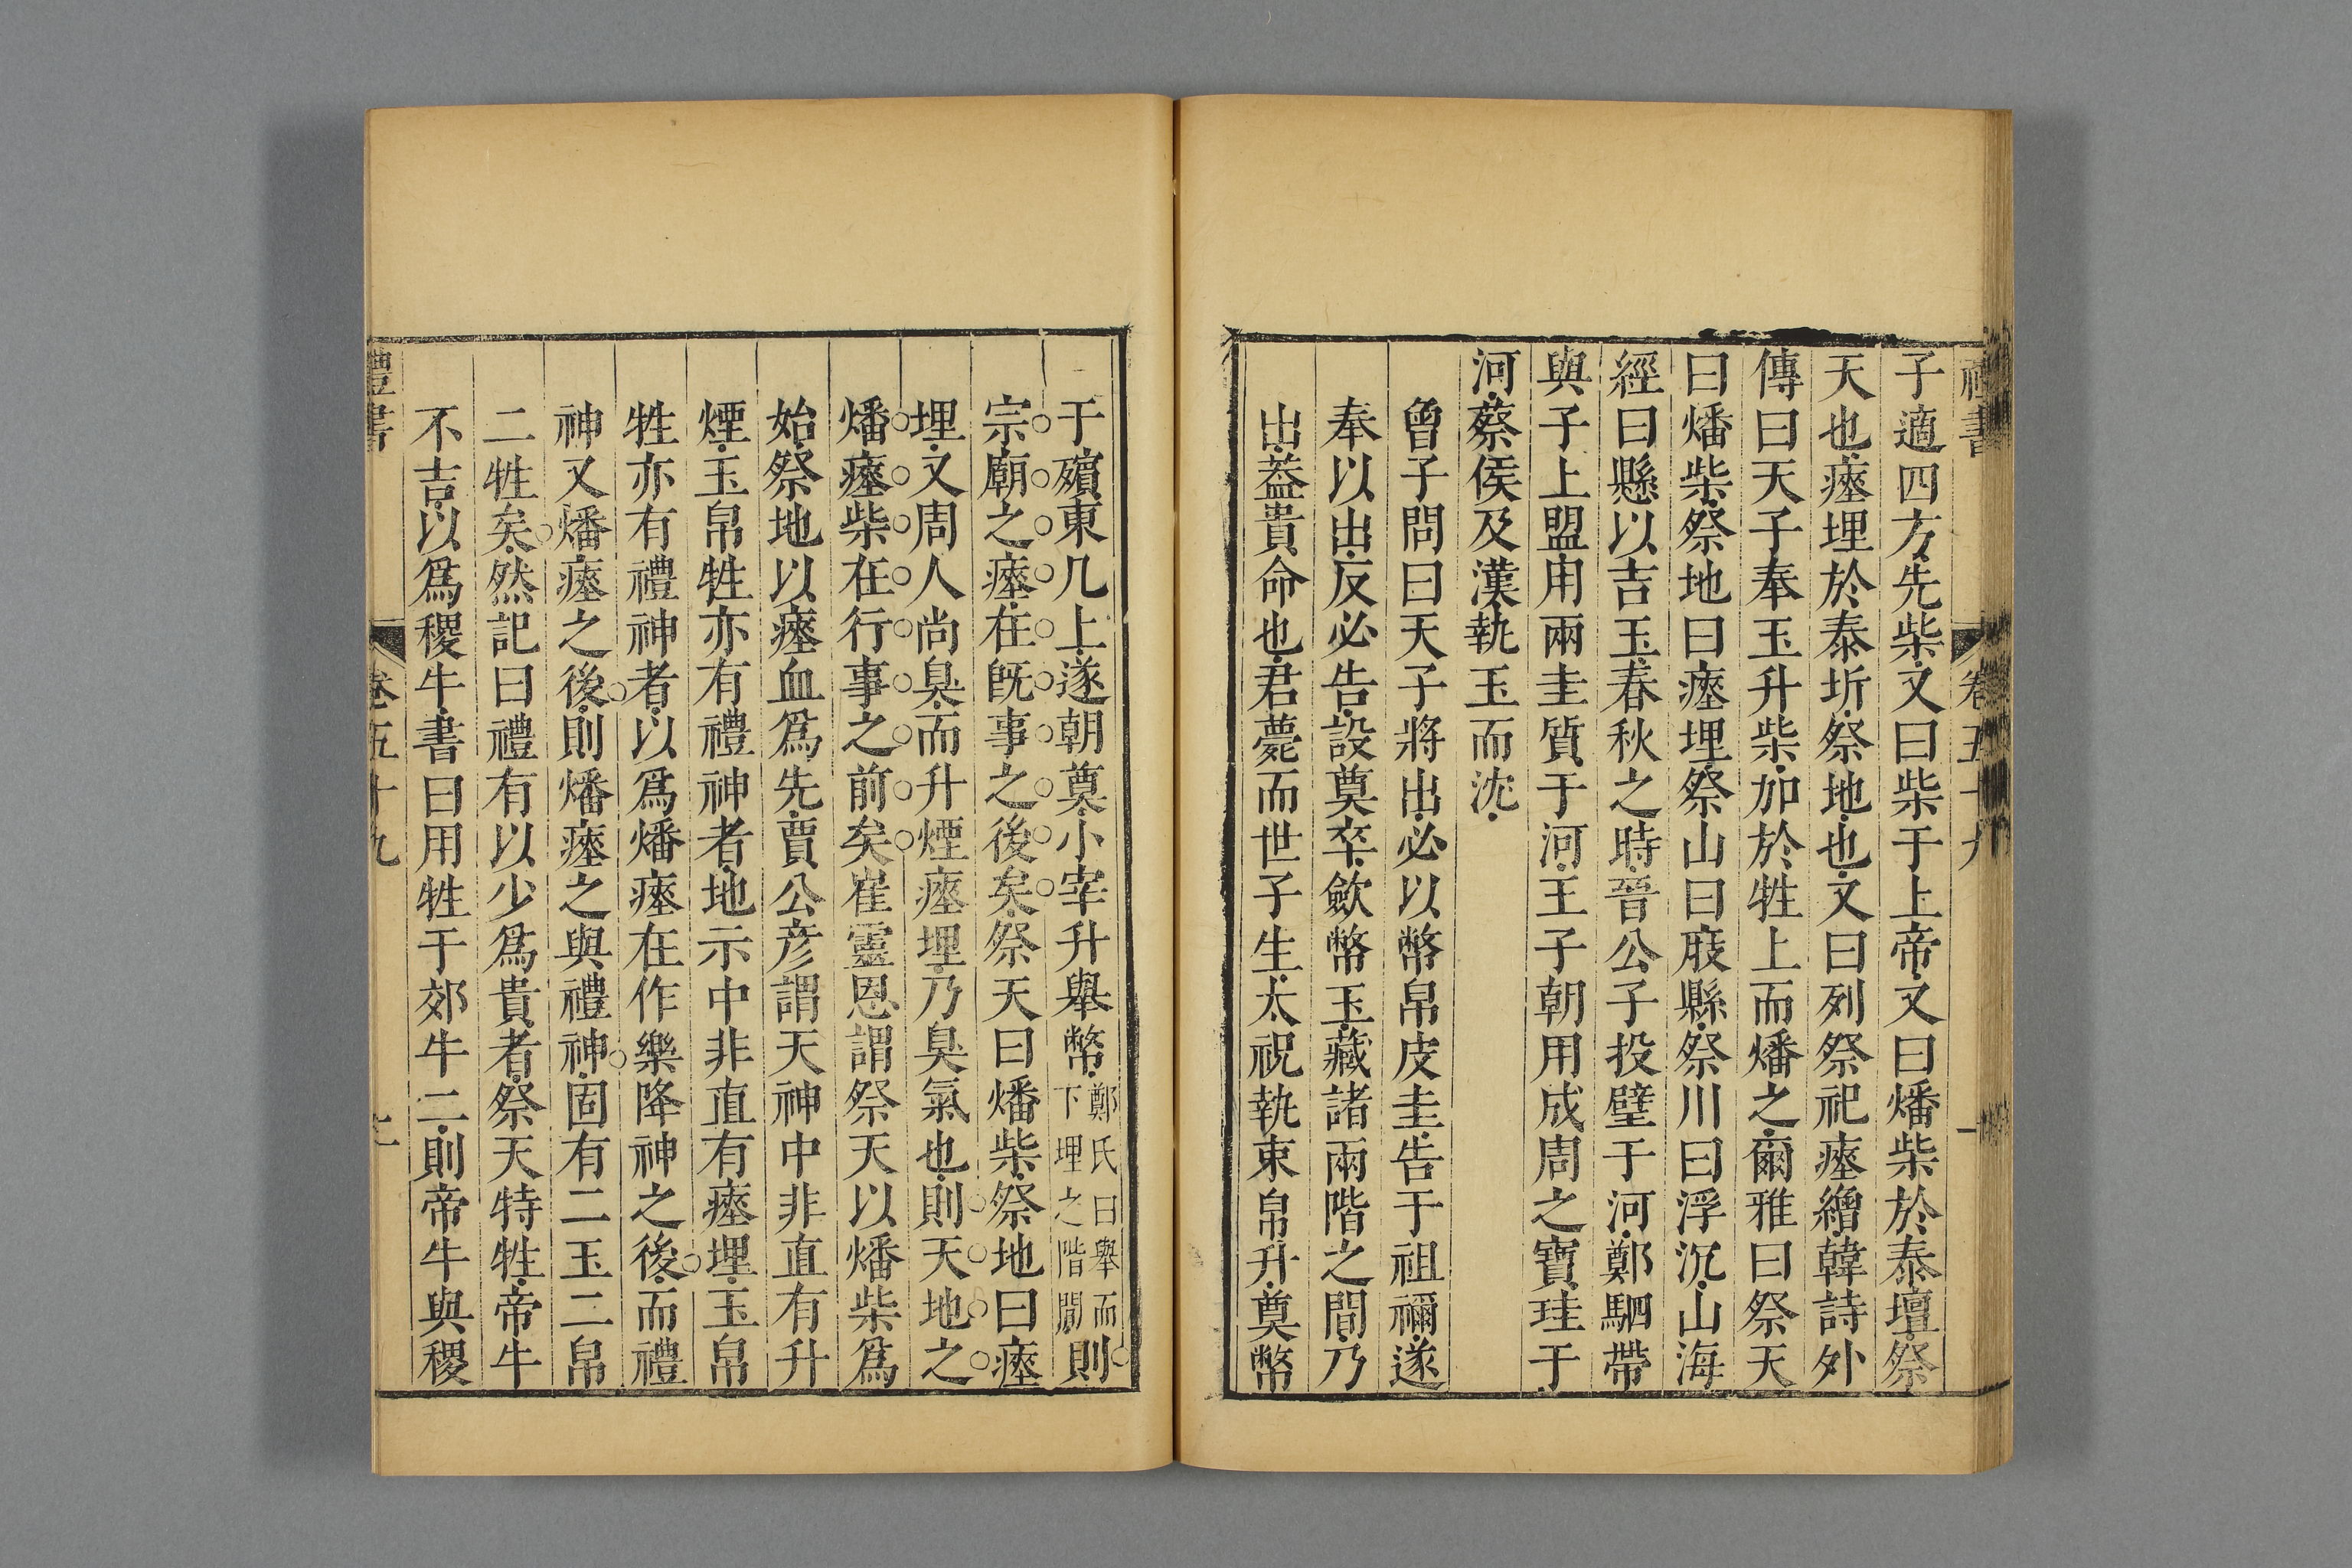 禮書 卷五十九 一
子適四方先柴又曰柴于上帝又曰燔柴於泰壇祭
天也瘞埋於泰圻祭地也又曰列祭祀瘞繒韓詩外
傳曰天子奉玉升柴加於牲上而燔之爾雅曰祭天
曰燔柴祭地曰瘞埋祭山曰庪縣祭川曰浮沉山海
經曰縣以吉玉春秋之時晉公子投璧于河鄭駟帶
與子上盟用兩圭質于河王子朝用成周之寶珪于
河蔡侯及漢執玉而沈
曾子問曰天子將出必以幣帛皮圭告于祖禰遂
奉以出反必告設奠卒歛幣玉藏諸兩階之間乃
出蓋貴命也君薨而世子生太祝執束帛升奠幣
于殯東几上遂朝奠小宰升舉幣鄭氏曰舉而下埋之階間則
宗廟之瘞在旣事之後矣祭天曰燔柴祭地曰瘞
埋又周人尚臭而升煙瘞埋乃臭氣也則天地之
燔瘞柴在行事之前矣崔靈恩謂祭天以燔柴爲
始祭地以瘞血爲先賈公彦謂天神中非直有升
煙玉帛牲亦有禮神者地示中非直有瘞埋玉帛
牲亦有禮神者以爲燔瘞在作樂降神之後而禮
神又燔瘞之後則燔瘞之與禮神固有二玉二帛
二牲矣然記曰禮有以少爲貴者祭天特牲帝牛
不吉以爲稷牛書曰用牲于郊牛二則帝牛與稷
禮書 卷五十九